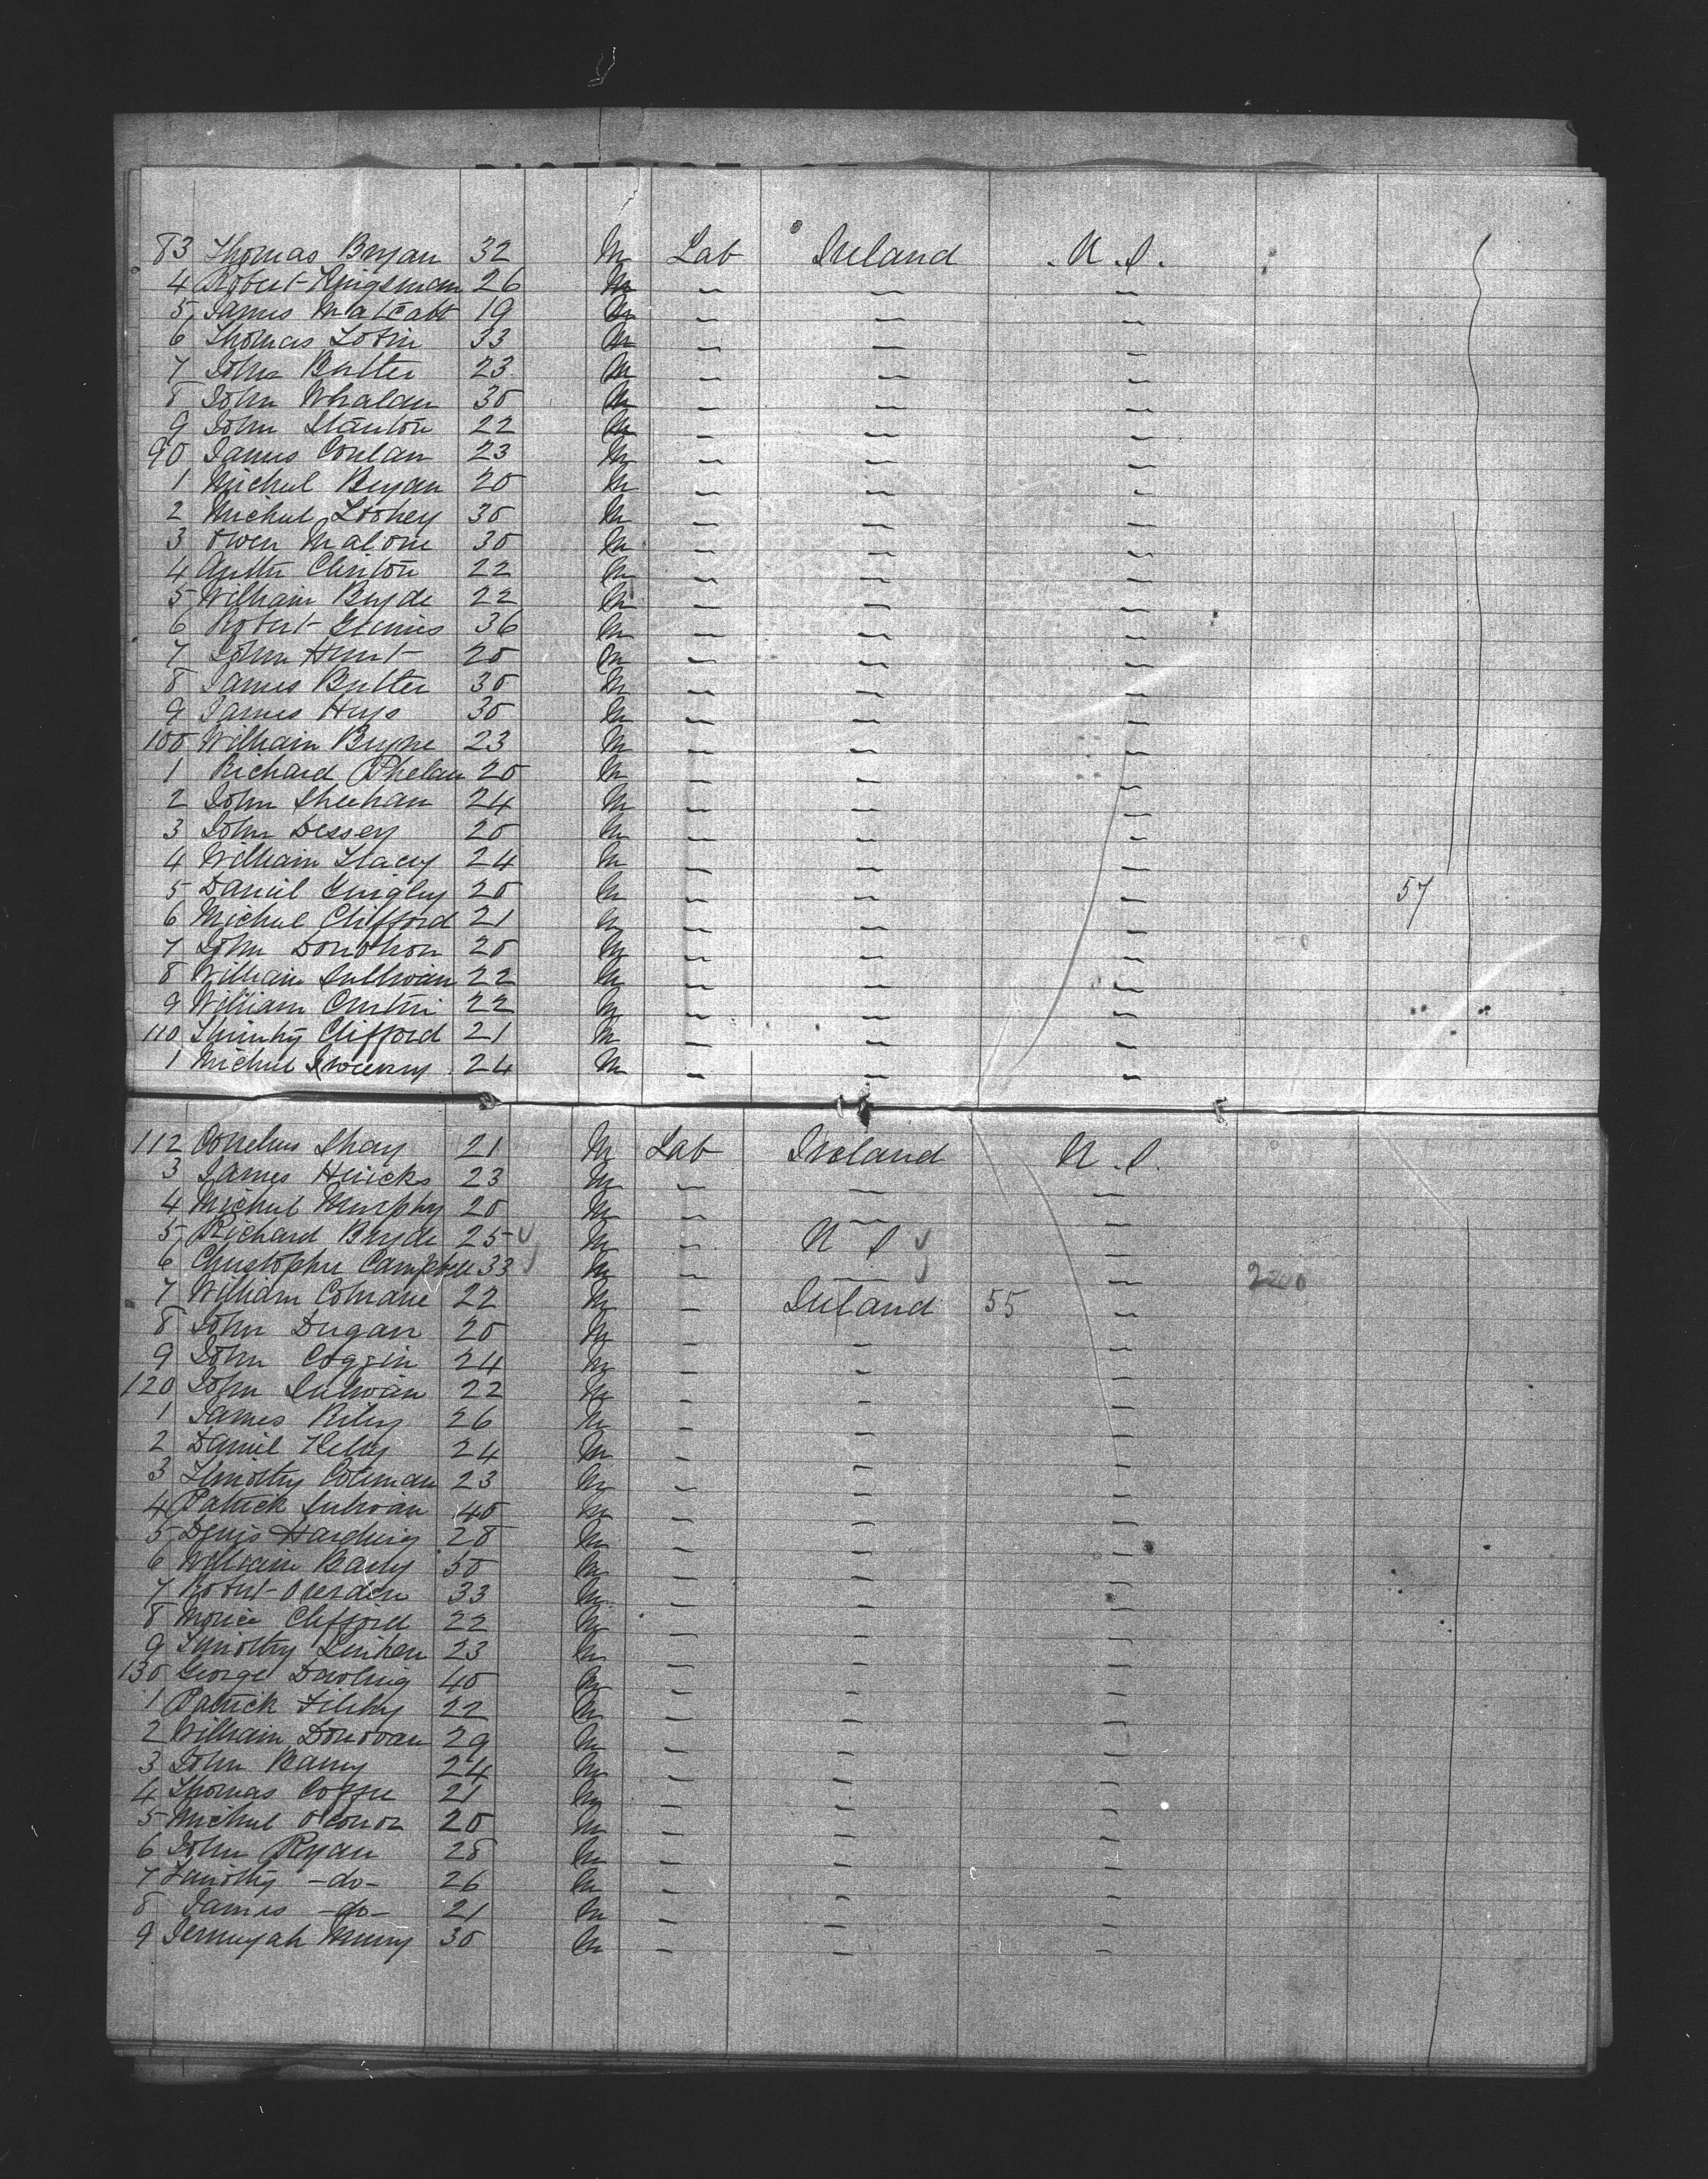 83 Thomas Bryan 32 M Lab Ireland U.S.
4 Robert Kingsman 26 M — — —
5 James Matcabt 19 M — — —
6 Thomas 33 M — — —
7 John Butler 23 M — — —
8 John Whalan 30 M — — —
9 John Stanton 22 M — — —
90 James Conlan 23 M — — —
1 Michul Bryan 20 M — — —
2 Michul Loohey 30 M — — —
3 Owen Malone 30 M — — —
4 Clinton 22 M — — —
5 William Bryde 22 M — — —
6 Robert 36 M — — —
7 John Hunt 20 M — — —
8 James Butler 30 M — — —
9 James Hays 30 M — — —
100 William Byrne 23 M — — —
1 Richard Phelan 20 M — — —
2 John Sheehan 24 M — — —
3 John Dessey 20 M — — —
4 William Stacey 24 M — — —
5 Daniel 20 M — — — 57
6 Michul Clifford 21 M — — —
7 John Donohon 20 M — — —
8 William Sullivan 22 M — — —
9 William 22 M — — —
110 Clifford 21 M — — —
1 Michul 24 M — — —
112 Cornelius Shay 21 M Lab Ireland U.S.
3 James Hinicks 23 M — — —
4 Michul Murphy 20 M — — —
5 Richard Bryde 25 M — U S —
6 Christopher Campbell 33 M — — — 2200
7 William Cohrane 22 M — Ireland 55 —
8 John Dugan 20 M — — —
9 John Coggin 24 M — — —
120 John Sulivan 22 M — — —
1 James Riley 26 M — — —
2 Daniel Kelly 24 M — — —
3 Timothy Coleman 23 M — — —
4 Patrick Sulivan 40 M — — —
5 Denis Harding 28 M — — —
6 William Barry 30 M — — —
7 Robert 33 M — — —
8 Morice Clifford 22 M — — —
9 Timothy Linihen 23 M — — —
130 George Dowling 40 M — — —
1 Patrick 22 M — — —
2 William Donovan 29 M — — —
3 John Barry 24 M — — —
4 Thomas Coffee 21 M — — —
5 Michul OConor 20 M — — —
6 John Ryan 28 M — — —
7 Timothy -do- 26 M — — —
8 James -do- 21 M — — —
9 Jermyah Murry 30 M — — —